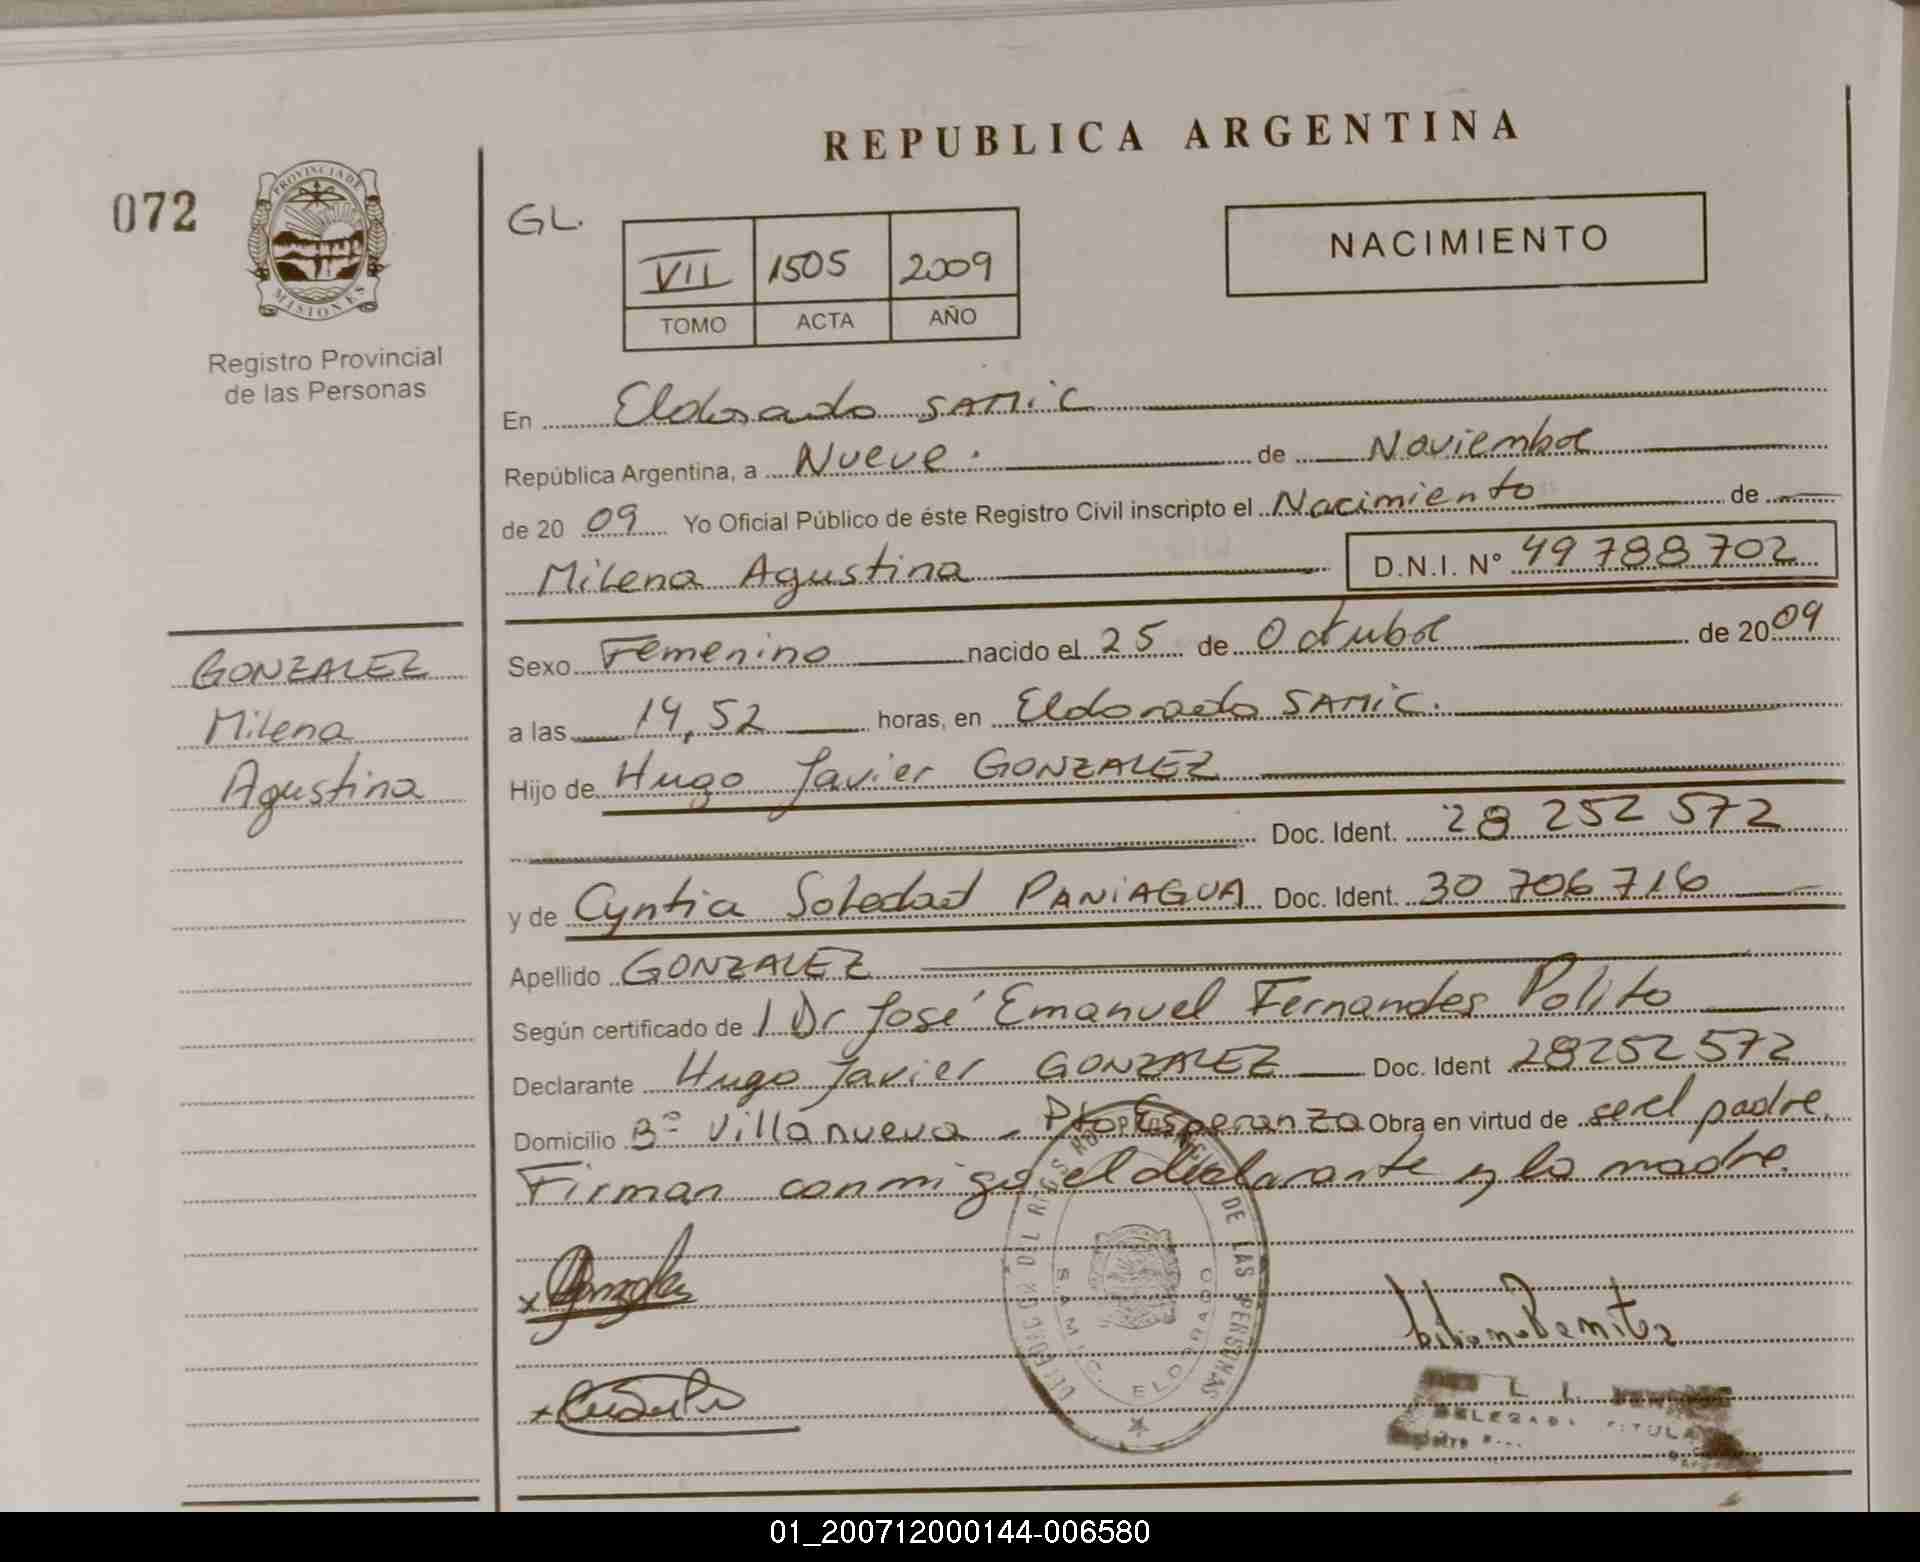 REPUBLICA ARGENTINA
072
PROVINCIA DE
MISIONES
Registro Provincial
de las Personas
GL.
VII 1505 2009
TOMO ACTA AÑO
NACIMIENTO
En Eldorado SAMiC
República Argentina, a Nueve. de Noviembre
de 20 09 Yo Oficial Público de éste Registro Civil inscripto el Nacimiento de
Milena Agustina D.N.I. N° 49 788 702
GONZALEZ
Milena
Agustina
Sexo Femenino nacido el 25 de Octubre de 20 09
a las 14,52 horas, en Eldorado SAMiC.
Hijo de Hugo Javier GONZALEZ
Doc. Ident. 28 252 572
y de Cyntia Soledad PANiAGUA Doc. Ident. 30 706 716
Apellido GONZALEZ
Según certificado de l Dr José Emanuel Fernandes Polito
Declarante Hugo Javier GONZALEZ Doc. Ident 28252572
Domicilio B° Villa nueva - Pto Esperanza Obra en virtud de ser el padre.
Firman conmigo el declarante y la madre.
DE LAS PERSONAS
S.A.M.I.C. ELDORADO
x Gonzalez
Liliana Benitez
DELEGADA TITULAR
01_200712000144-006580